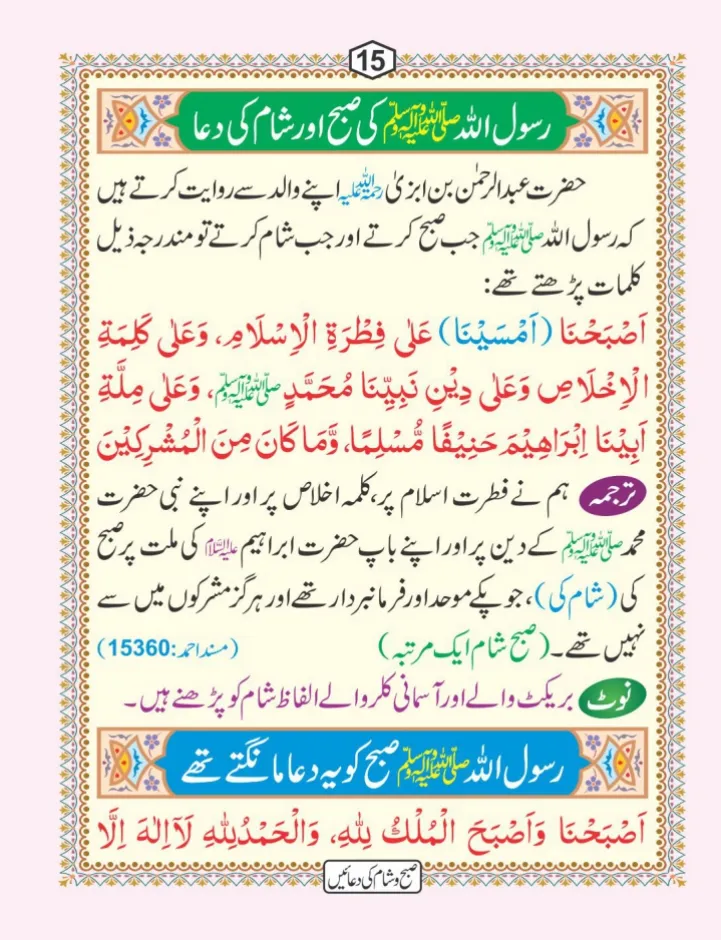 15
رسول اللہ صلی اللہ علیہ وآلہ وسلم کی صبح اور شام کی دعا
حضرت عبدالرحمٰن بن ابزیٰ رحمۃ اللہ علیہ اپنے والد سے روایت کرتے ہیں
کہ رسول اللہ صلی اللہ علیہ وآلہ وسلم جب صبح کرتے اور جب شام کرتے تو مندرجہ ذیل
کلمات پڑھتے تھے:
اَصْبَحْنَا (اَمْسَيْنَا) عَلٰى فِطْرَةِ الْاِسْلَامِ، وَعَلٰى كَلِمَةِ
الْاِخْلَاصِ وَعَلٰى دِيْنِ نَبِيِّنَا مُحَمَّدٍ صلی اللہ علیہ وآلہ وسلم، وَعَلٰى مِلَّةِ
اَبِيْنَا اِبْرَاهِيْمَ حَنِيْفًا مُّسْلِمًا، وَّمَا كَانَ مِنَ الْمُشْرِكِيْنَ
ترجمہ ہم نے فطرت اسلام پر، کلمہ اخلاص پر اور اپنے نبی حضرت
محمد صلی اللہ علیہ وآلہ وسلم کے دین پر اور اپنے باپ حضرت ابراہیم علیہ السلام کی ملت پر صبح
کی (شام کی)، جو پکے موحد اور فرمانبردار تھے اور ہرگز مشرکوں میں سے
نہیں تھے۔ (صبح شام ایک مرتبہ) (مسند احمد: 15360)
نوٹ بریکٹ والے اور آسمانی کلر والے الفاظ شام کو پڑھنے ہیں۔
رسول اللہ صلی اللہ علیہ وآلہ وسلم صبح کو یہ دعا مانگتے تھے
اَصْبَحْنَا وَاَصْبَحَ الْمُلْكُ لِلّٰهِ، وَالْحَمْدُلِلّٰهِ لَآاِلٰهَ اِلَّا
صبح و شام کی دعائیں